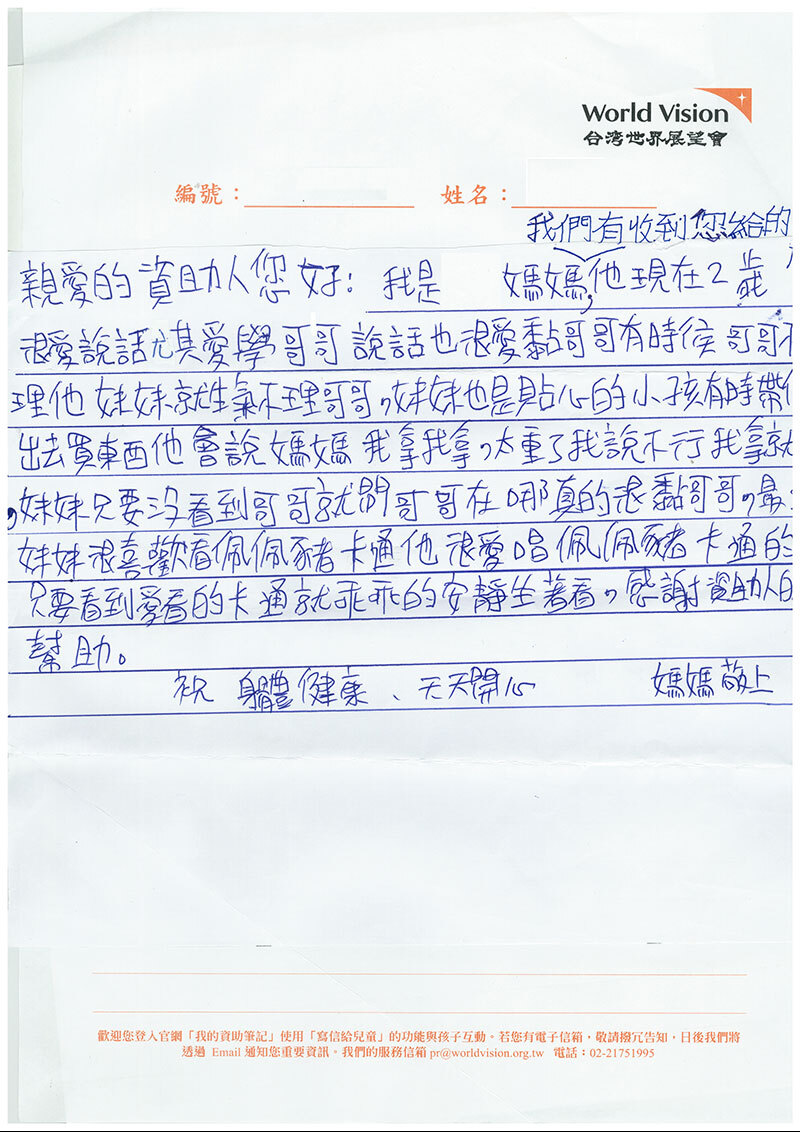 World Vision
台灣世界展望會
編號：
姓名：
我們有收到您給的
親愛的資助人您好：我是 媽媽,他現在2歲
很愛說話尤其愛學哥哥說話也很愛黏哥哥有時候哥哥不
理他妹妹就生氣不理哥哥,妹妹也是貼心的小孩有時帶他
出去買東西他會說媽媽我拿我拿,太重了我說不行我拿就
,妹妹只要沒看到哥哥就問哥哥在哪真的很黏哥哥,最
妹妹很喜歡看佩佩豬卡通他很愛唱佩佩豬卡通的
只要看到愛看的卡通就乖乖的安靜坐著看,感謝資助人的
幫助。
祝 身體健康、天天開心 媽媽敬上
歡迎您登入官網「我的資助筆記」使用「寫信給兒童」的功能與孩子互動。若您有電子信箱，敬請撥冗告知，日後我們將
透過 Email 通知您重要資訊。我們的服務信箱 pr@worldvision.org.tw 電話：02-21751995